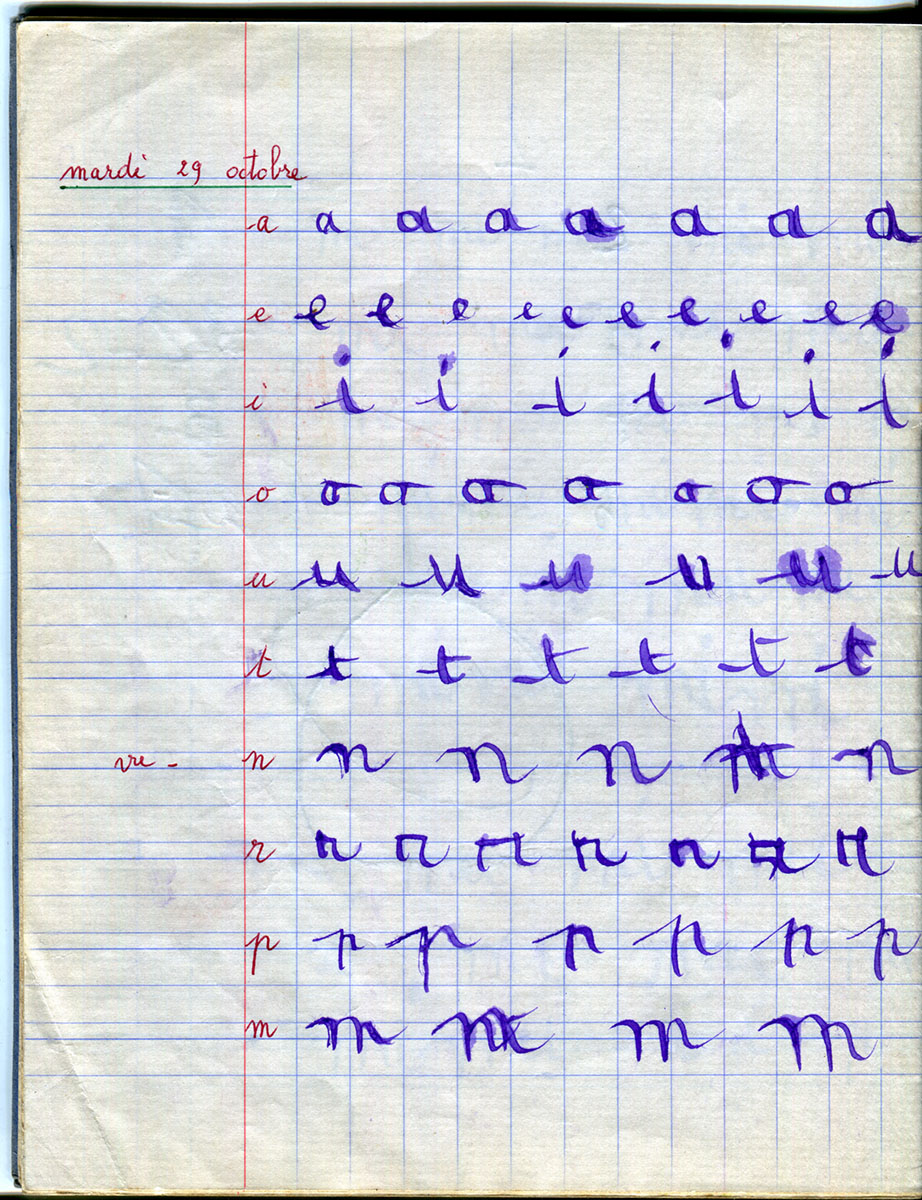 mardi 29 octobre
a a a a a a a a
e e e e e e e e e e e
i i i i i i i i
o o o o o o o o
u u u u u u u
t t t t t t t
n n n n n n
r r r r r r r r
p p p p p p p
m m m m m